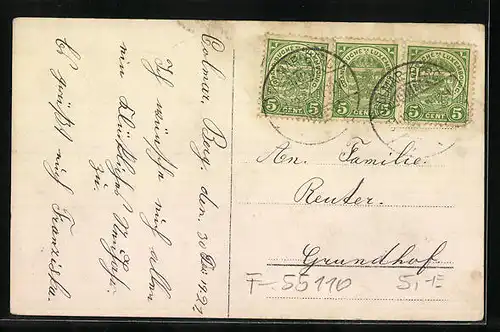 Colmar, Berg. den. 30 Dez 1927
Ich wünsche euch allen
ein Glückliches Neujahr.
zu.
Es grüßt euch Franziska.
5 5
CENT
5 5
CENT
5 5
CENT
COLMAR
An. Familie.
Reuter.
Grundhof
F-55110 5,-E